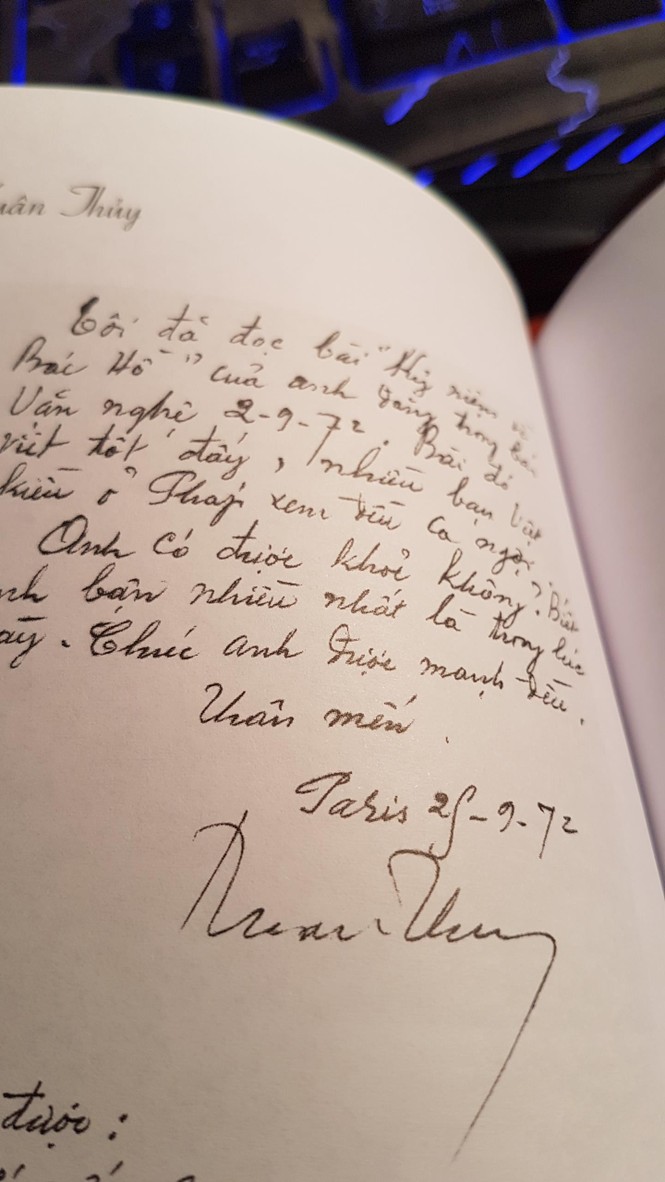 uân Thủy
Tôi đã đọc bài "Kỷ niệm về
Bác Hồ" của anh đăng trong báo
Văn nghệ 2-9-72. Bài đó
viết tốt đấy, nhiều bạn Việt
kiều ở Pháp xem đều ca ngợi.
Anh có được khoẻ không? Biết
anh bận nhiều nhất là trong lúc
ày. Chúc anh được mạnh đều.
Thân mến.
Paris 25-9-72
Xuan Thuy
được: